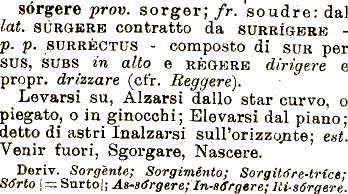 sórgere prov. sorger; fr. soudre: dal
lat. SÙRGERE contratto da SURRÍGERE -
p. p. SURRÈCTUS - composto di SUR per
SUS, SUBS in alto e RÈGERE dirigere e
propr. drizzare (cfr. Reggere).
Levarsi su, Alzarsi dallo star curvo, o
piegato, o in ginocchi; Elevarsi dal piano;
detto di astri Inalzarsi sull'orizzonte; est.
Venir fuori, Sgorgare, Nascere.
Deriv. Sorgènte; Sorgiménto; Sorgitóre-trice;
Sórto [= Surto]; As-sórgere; In-sórgere; Ri-sórgere.